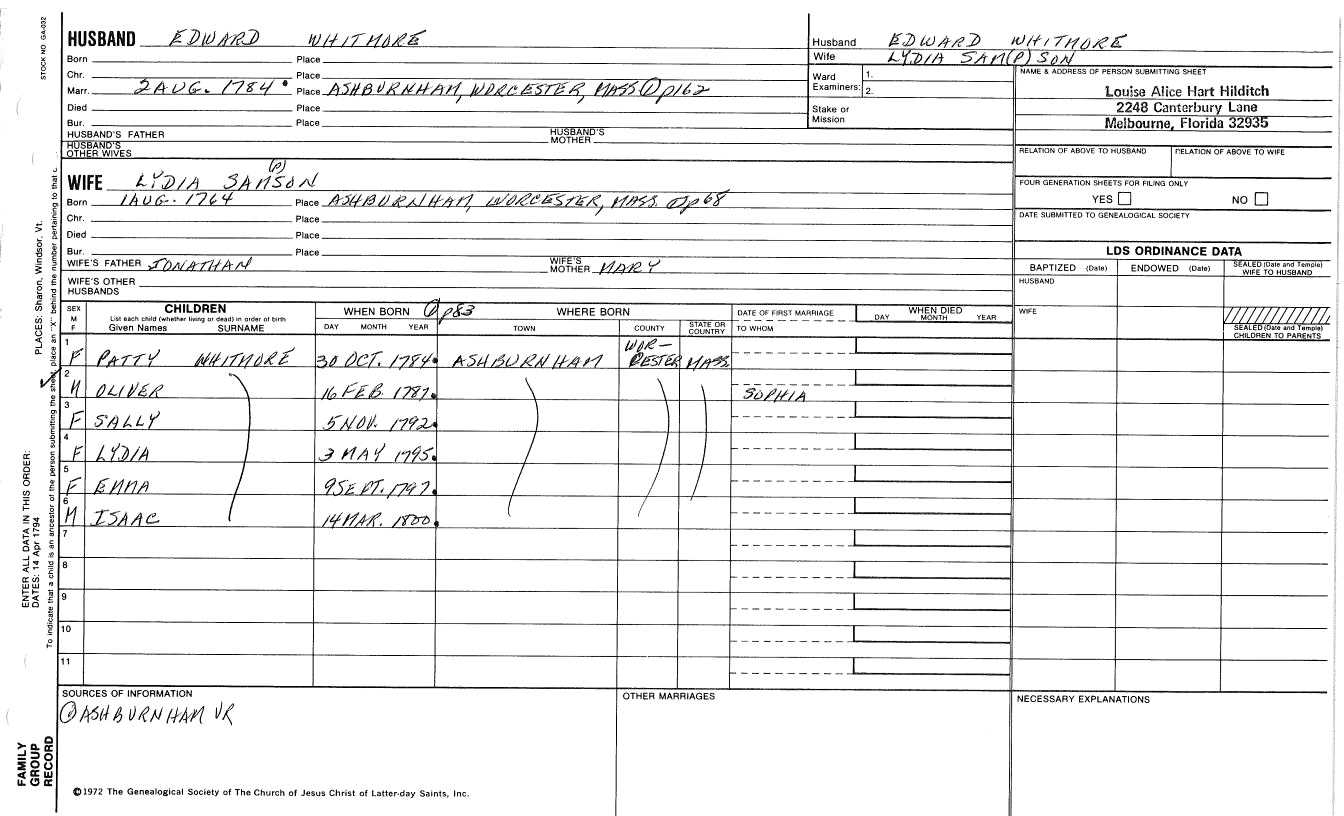 STOCK NO. GA-032
PLACES: Sharon, Windsor, Vt.
ENTER ALL DATA IN THIS ORDER:
DATES: 14 Apr 1794
To indicate that a child is an ancestor of the person submitting the sheet, place an "X" behind the number pertaining to that c
FAMILY
GROUP
RECORD
HUSBAND EDWARD WHITMORE
Born Place
Chr. Place
Marr. 2 AUG. 1784 Place ASHBURNHAM, WORCESTER, MASS ① p162
Died Place
Bur. Place
HUSBAND'S FATHER HUSBAND'S MOTHER
HUSBAND'S OTHER WIVES
(P)
WIFE LYDIA SAMSON
Born 1 AUG. 1764 Place ASHBURNHAM, WORCESTER, MASS. ① p68
Chr. Place
Died Place
Bur. Place
WIFE'S FATHER JONATHAN WIFE'S MOTHER MARY
WIFE'S OTHER HUSBANDS
Husband EDWARD WHITMORE
Wife LYDIA SAM(P)SON
Ward Examiners: 1.
2.
Stake or Mission
NAME & ADDRESS OF PERSON SUBMITTING SHEET
Louise Alice Hart Hilditch
2248 Canterbury Lane
Melbourne, Florida 32935
RELATION OF ABOVE TO HUSBAND RELATION OF ABOVE TO WIFE
FOUR GENERATION SHEETS FOR FILING ONLY
YES NO
DATE SUBMITTED TO GENEALOGICAL SOCIETY
LDS ORDINANCE DATA
BAPTIZED (Date) ENDOWED (Date) SEALED (Date and Temple) WIFE TO HUSBAND
HUSBAND
WIFE
SEALED (Date and Temple) CHILDREN TO PARENTS
SEX M F CHILDREN WHEN BORN ① p83 WHERE BORN DATE OF FIRST MARRIAGE WHEN DIED
List each child (whether living or dead) in order of birth
Given Names SURNAME DAY MONTH YEAR TOWN COUNTY STATE OR COUNTRY TO WHOM DAY MONTH YEAR
1 F PATTY WHITMORE 30 OCT. 1784 ASHBURNHAM WOR-CESTER MASS.
2 M OLIVER 16 FEB. 1787 SOPHIA
3 F SALLY 5 NOV. 1792
4 F LYDIA 3 MAY 1795
5 F EMMA 9 SEPT. 1797
6 M ISAAC 14 MAR. 1800
7
8
9
10
11
SOURCES OF INFORMATION OTHER MARRIAGES NECESSARY EXPLANATIONS
① ASHBURNHAM VR
©1972 The Genealogical Society of The Church of Jesus Christ of Latter-day Saints, Inc.